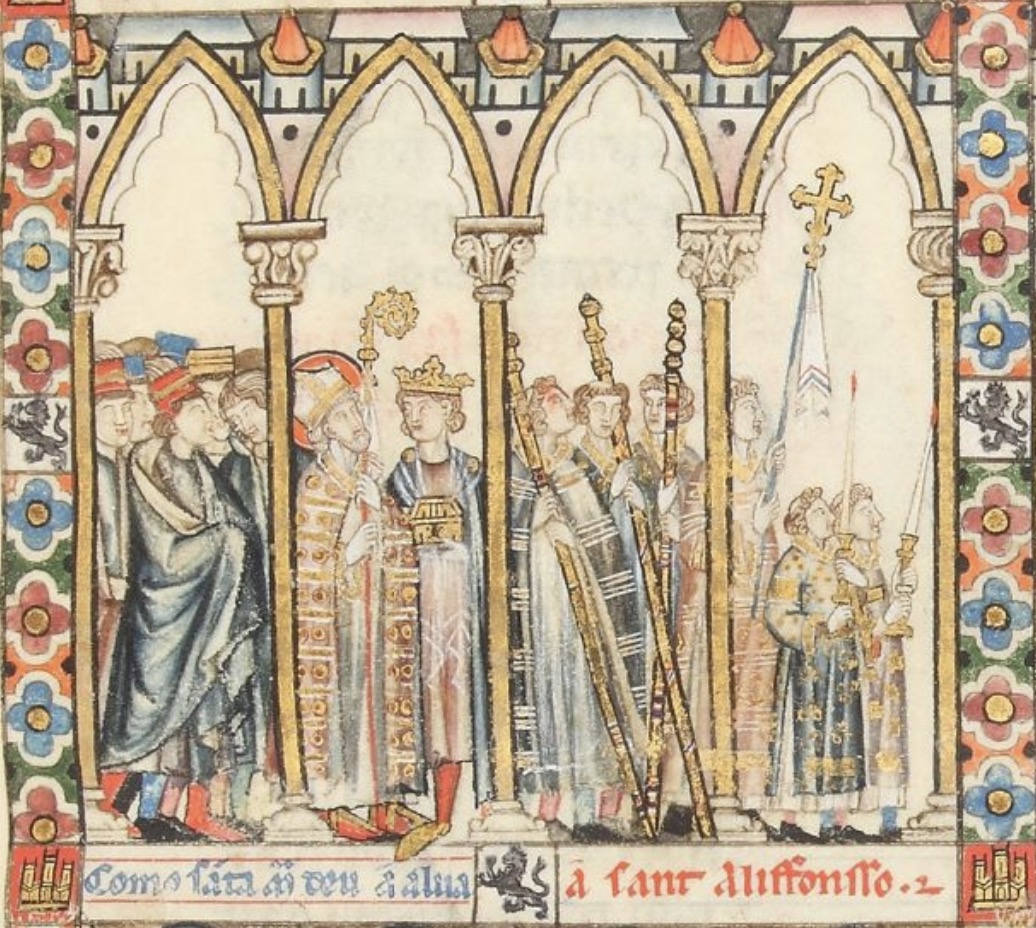 Como sãta m̃ deu ã alua
ã sant aliffonsso. 2